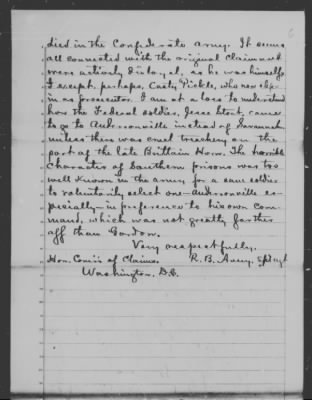 died in the Confederate army. It seems
all connected with the original claimant
were actively disloyal, as he was himself,
I except, perhaps, Casty Pickle, who now
in as prosecutor. I am at a loss to understand
how the Federal soldier, Jesse came
to go to Andersonville instead of Savannah
unless there was cruel treachery on the
part of the late Brittain Horn. The horrible
character of Southern prisons was too
well known in the army for a sane soldier
to voluntarily select one - Andersonville es-
pecially - in preference to his own com-
mand, which was not greatly farther
off than Gordon.
Very respectfully,
Hon. Com'rs of Claims R. B. Avery,
Washington, D.C.